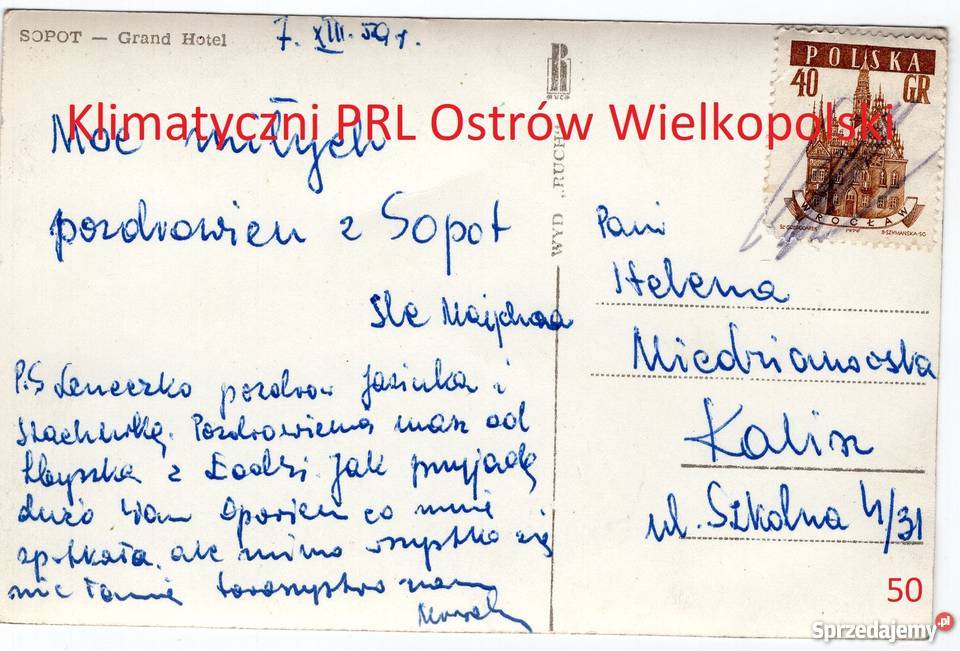 SOPOT — Grand Hotel
7. XII. 59 r.
Klimatyczni PRL Ostrów Wielkopolski
Moc miłych
pozdrowien z Sopot
Śle
P.S Leneczko pozdrów i
Pozdrowienia masz od
Zbyszka z Łodzi. Jak przyjadę
dużo Wam opowiem co mnie
spotkało, ale mimo wszystko się
nie
WYD „RUCH"
POLSKA
40 GR
WROCŁAW
Pani
Helena
Miedzianowska
Kalisz
ul. Szkolna 4/31
50
Sprzedajemy.pl